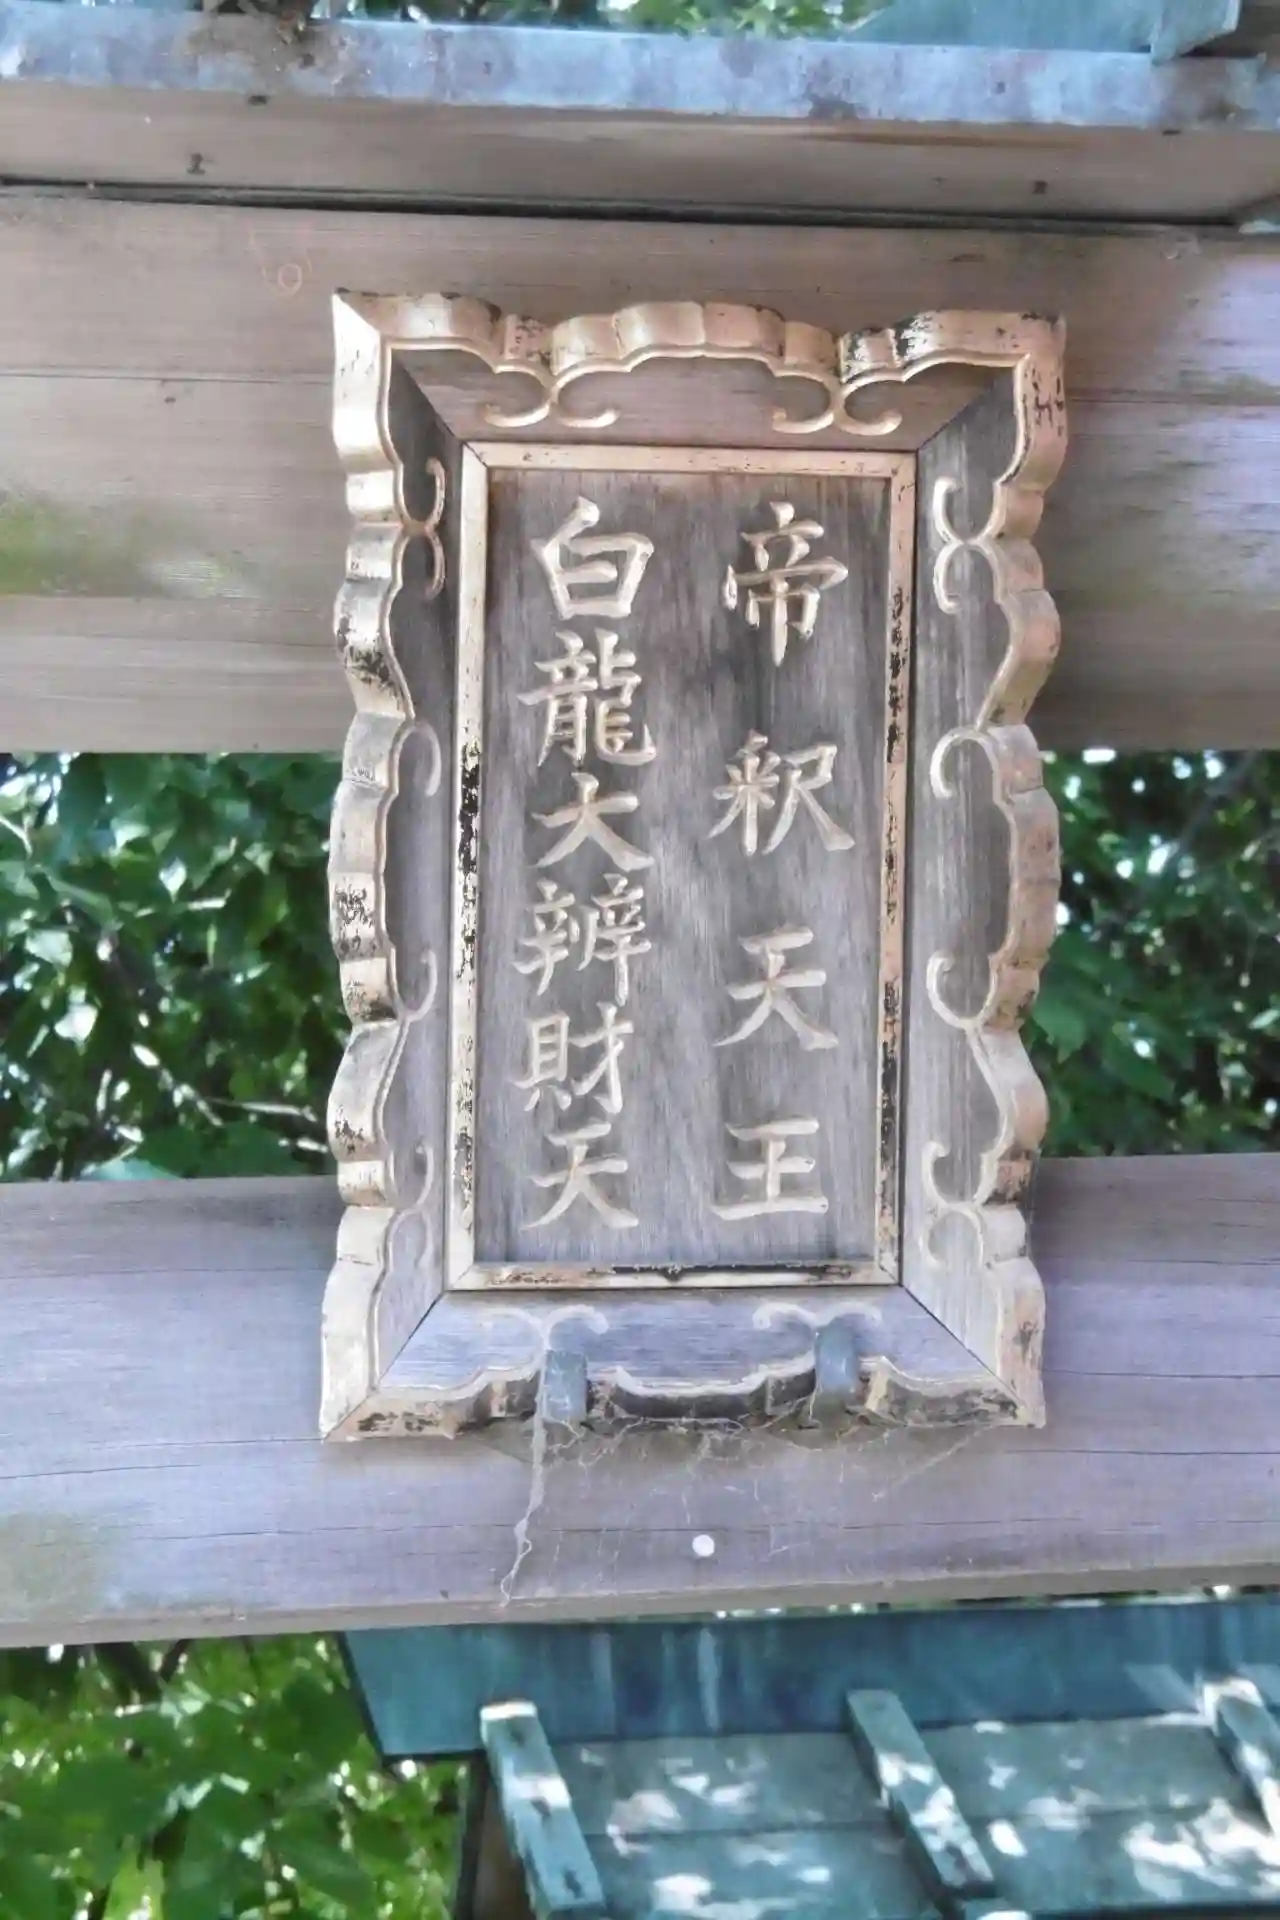 帝釈天王
白龍大辨財天